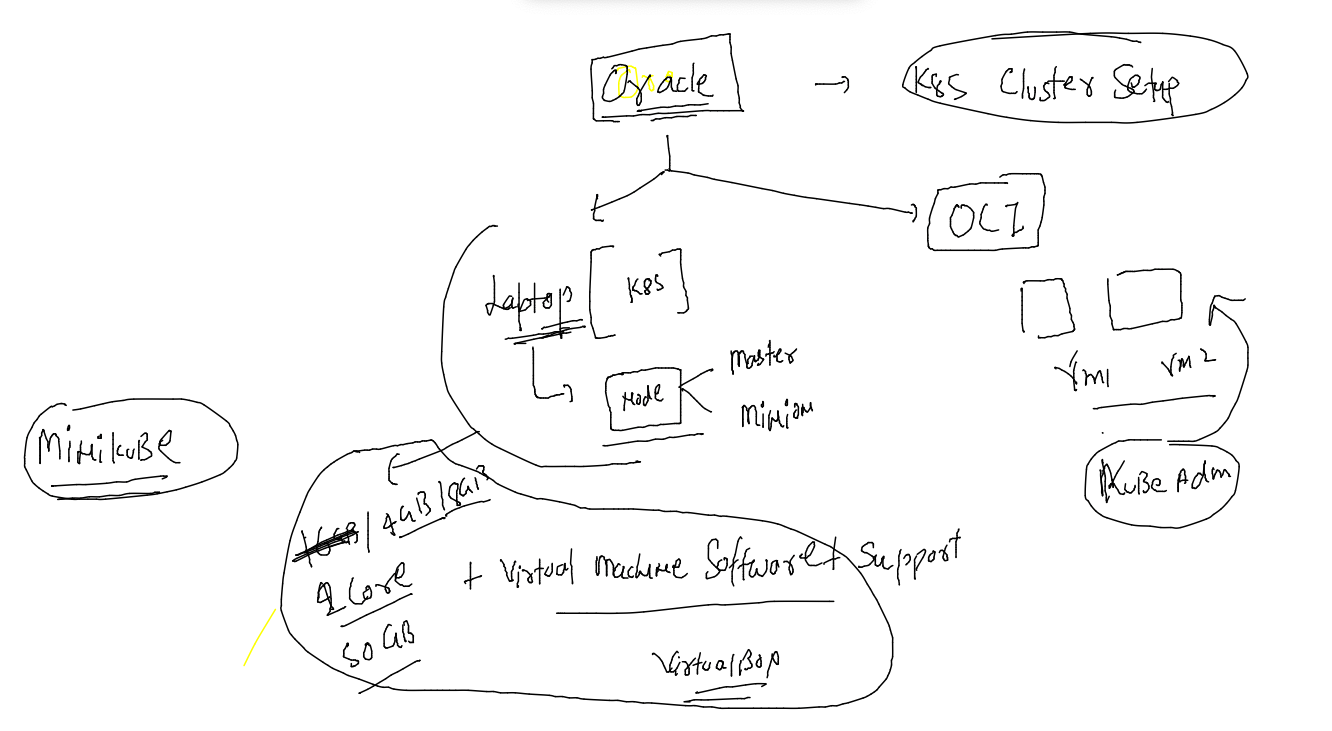 Oracle → K8S Cluster Setup
OCI
Laptop [ K8S ]
Master
Node
Minion
VM1 VM2
MiniKuBE
KuBe Adm
/ 4GB / 8GB
2 Core + Virtual Machine Software + Support
50 GB
VirtualBox